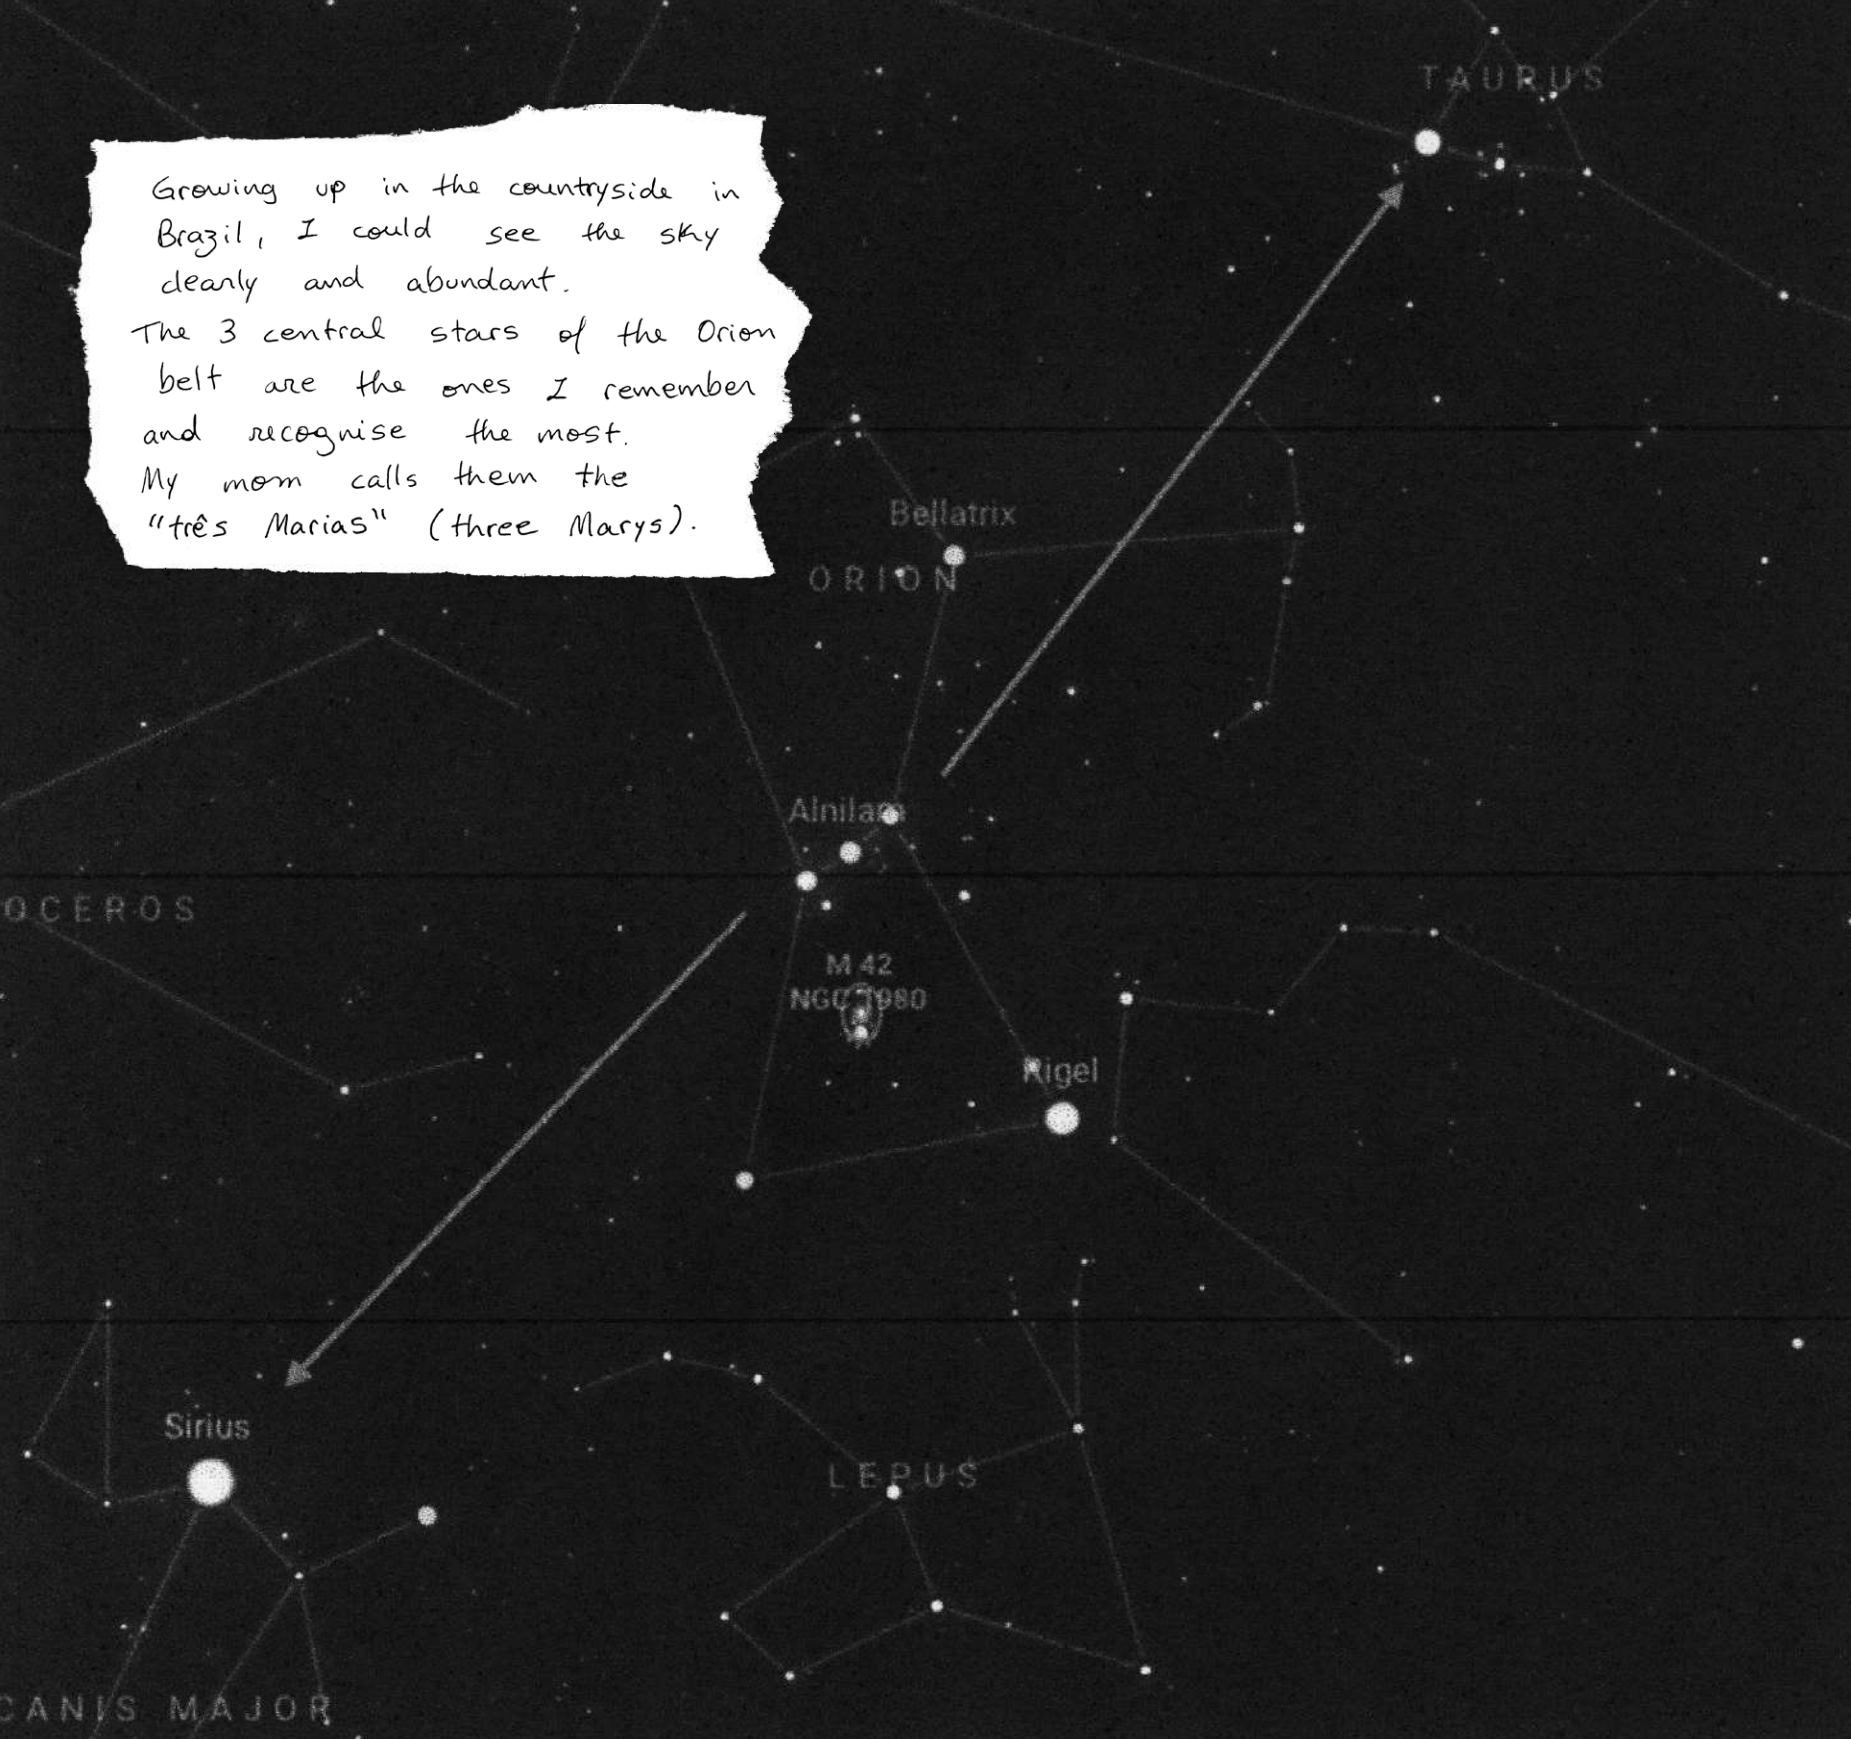 TAURUS
Growing up in the countryside in
Brazil, I could see the sky
clearly and abundant.
The 3 central stars of the Orion
belt are the ones I remember
and recognise the most.
My mom calls them the
"três Marias" (three Marys).
Bellatrix
ORION
Alnilam
OCEROS
M 42
NGC 1980
Rigel
Sirius
LEPUS
CANIS MAJOR